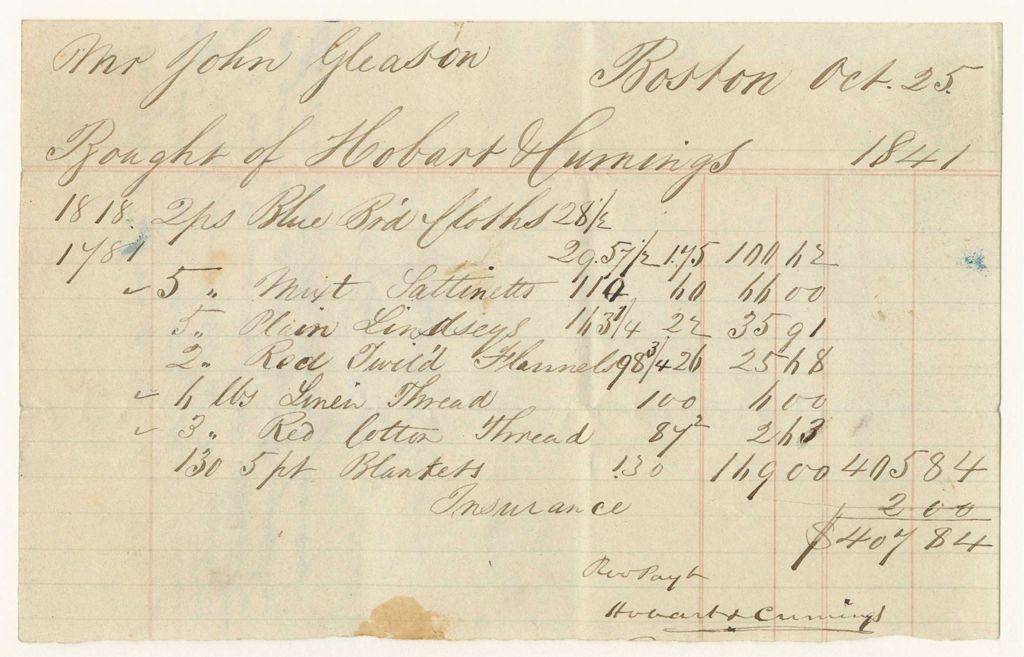 Mr John Gleason
Boston Oct. 25.
Bought of Hobart & Cumings 1841
1818. 2 ps Blue Br'd Cloths 28 1/2
1781 29. 57 1/2 1.75 100 62
✓ 5 " Mixt Sattinetts 110 60 66 00
5 " Plain Lindseys 163 1/4 22 35 91
2 " Red Twil'd Flannels 98 3/4 26 25 68
✓ 6 lbs Linen Thread 100 6 00
✓ 3 " Red Cotton Thread 87 2 2 63
130 5 pt Blankets 1.30 169 00 405 84
Insurance 2 00
$407 84
Rec Payt
Hobart & Cumings